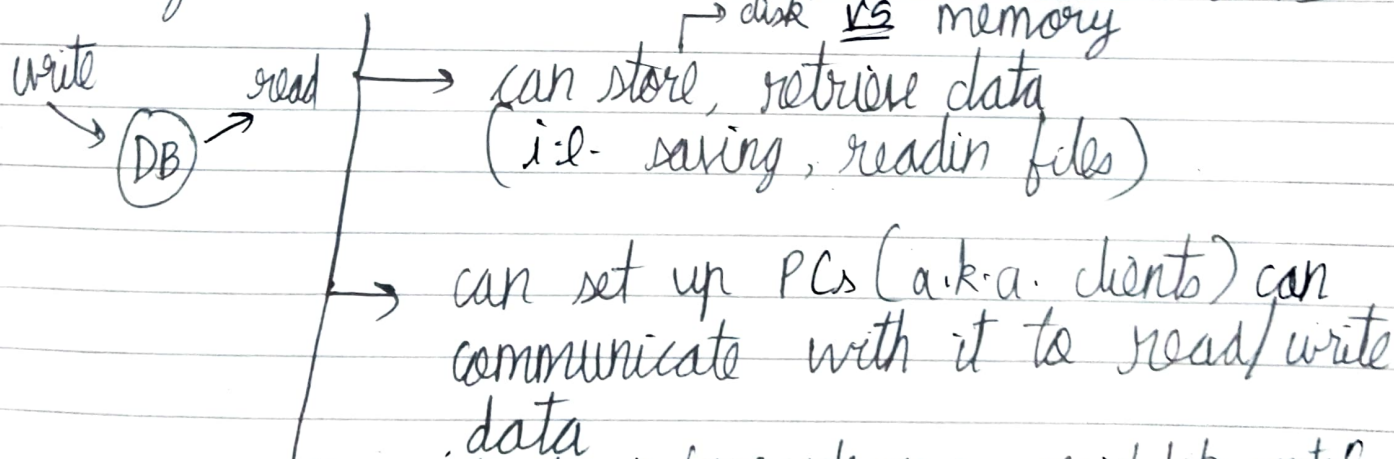 disk vs memory
write
read
DB
can store, retrieve data
(i.e. saving, readin files)
can set up PCs (a.k.a. clients) can
communicate with it to read/write
data